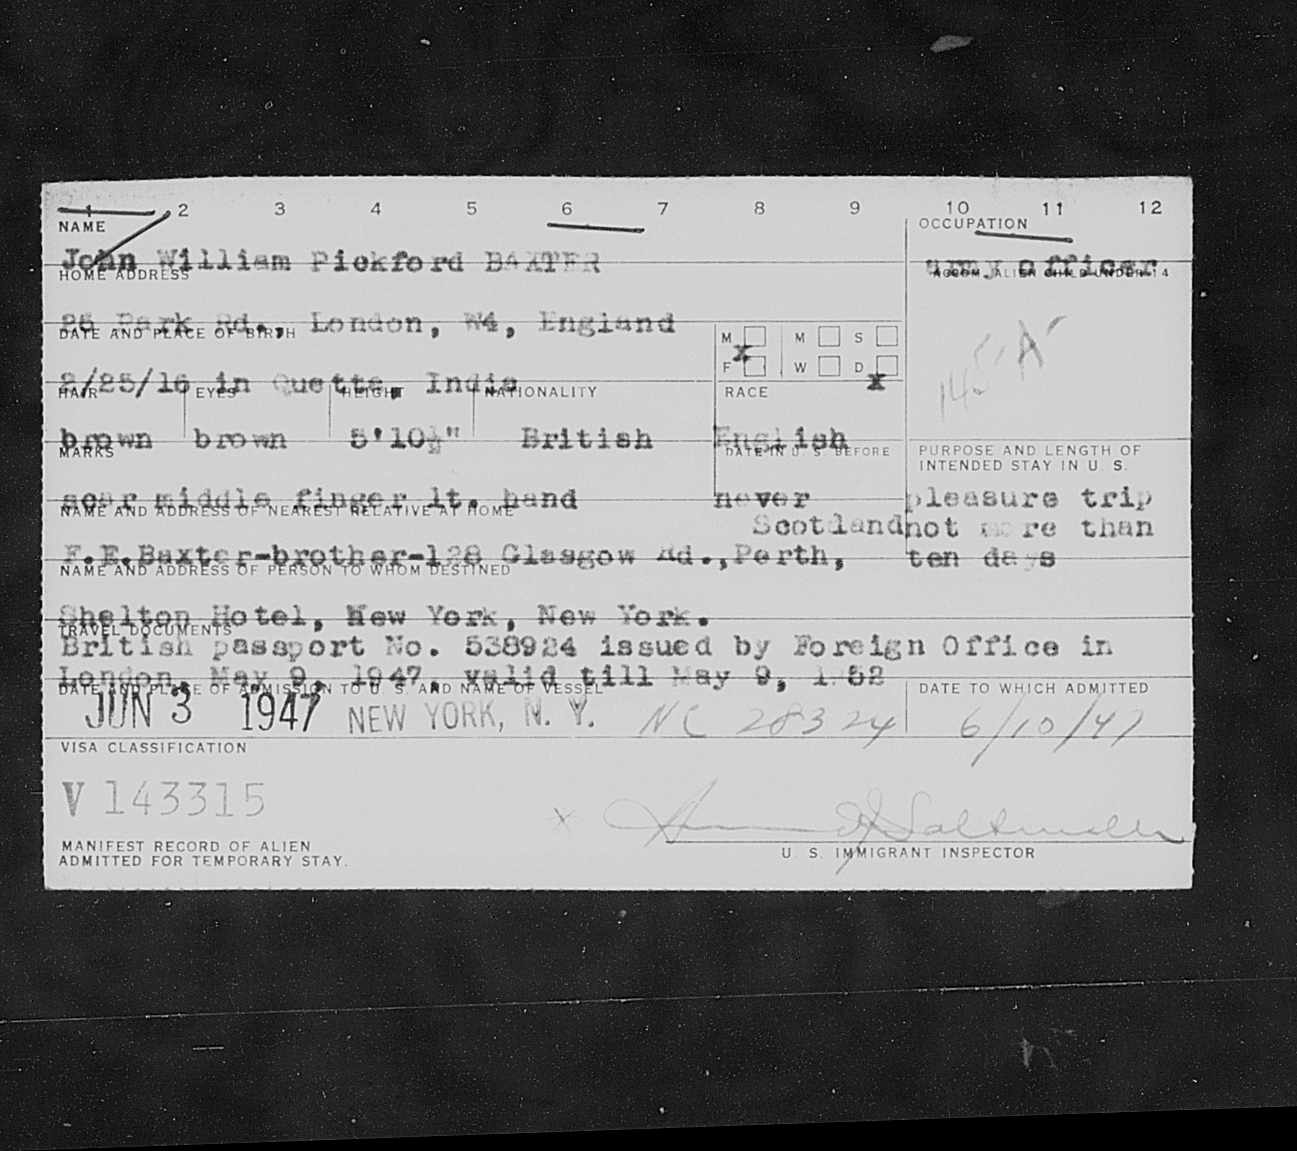 1 2 3 4 5 6 7 8 9 10 11 12
NAME OCCUPATION
John William Pickford BAXTER army officer
HOME ADDRESS ACCOM. ALIEN CHILD UNDER 14
25 Park Rd., London, W4, England
DATE AND PLACE OF BIRTH M M S
x
F W D
2/25/16 in Quetta, India x
HAIR EYES HEIGHT NATIONALITY RACE
brown brown 5'10½" British English
MARKS DATE IN U. S. BEFORE PURPOSE AND LENGTH OF
INTENDED STAY IN U. S.
scar middle finger lt. hand never pleasure trip
NAME AND ADDRESS OF NEAREST RELATIVE AT HOME
Scotland not more than
F.E.Baxter-brother-128 Glasgow Rd.,Perth, ten days
NAME AND ADDRESS OF PERSON TO WHOM DESTINED
Shelton Hotel, New York, New York.
TRAVEL DOCUMENTS
British passport No. 538924 issued by Foreign Office in
London, May 9, 1947, valid till May 9, 1952
DATE AND PLACE OF ADMISSION TO U. S. AND NAME OF VESSEL DATE TO WHICH ADMITTED
JUN 3 1947 NEW YORK, N. Y. NC 28324 6/10/47
VISA CLASSIFICATION
V 143315
MANIFEST RECORD OF ALIEN
ADMITTED FOR TEMPORARY STAY.
U. S. IMMIGRANT INSPECTOR